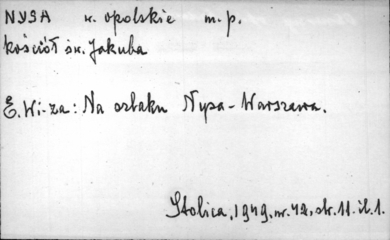 NYSA w. opolskie m.p.
kościół św. Jakuba
E. Wi-za: Na szlaku Nysa-Warszawa.
Stolica, 1949, nr. 42, str. 11. il. 1.